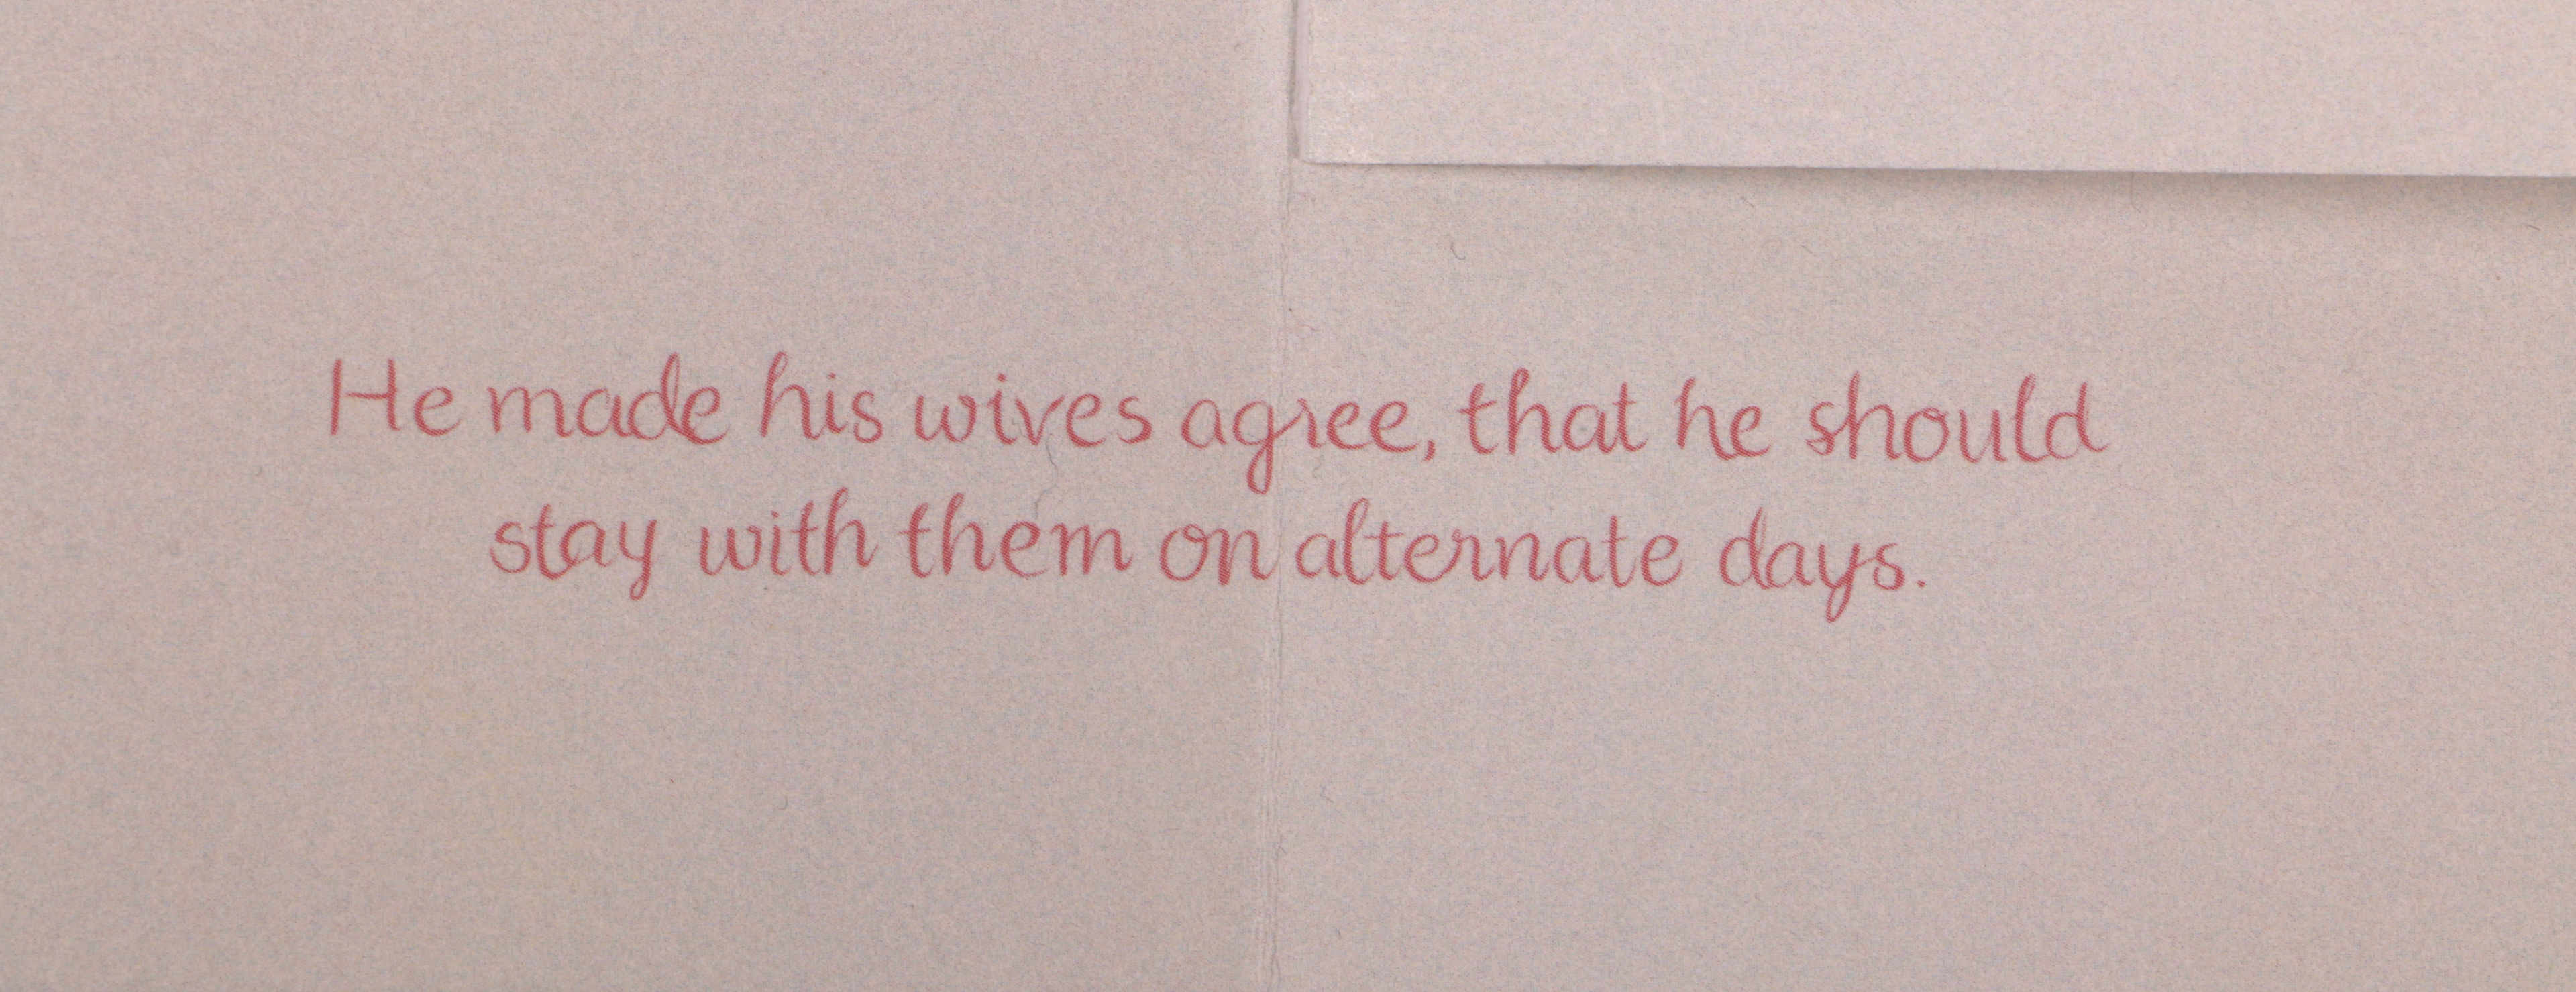 He made his wives agree, that he should
stay with them on alternate days.